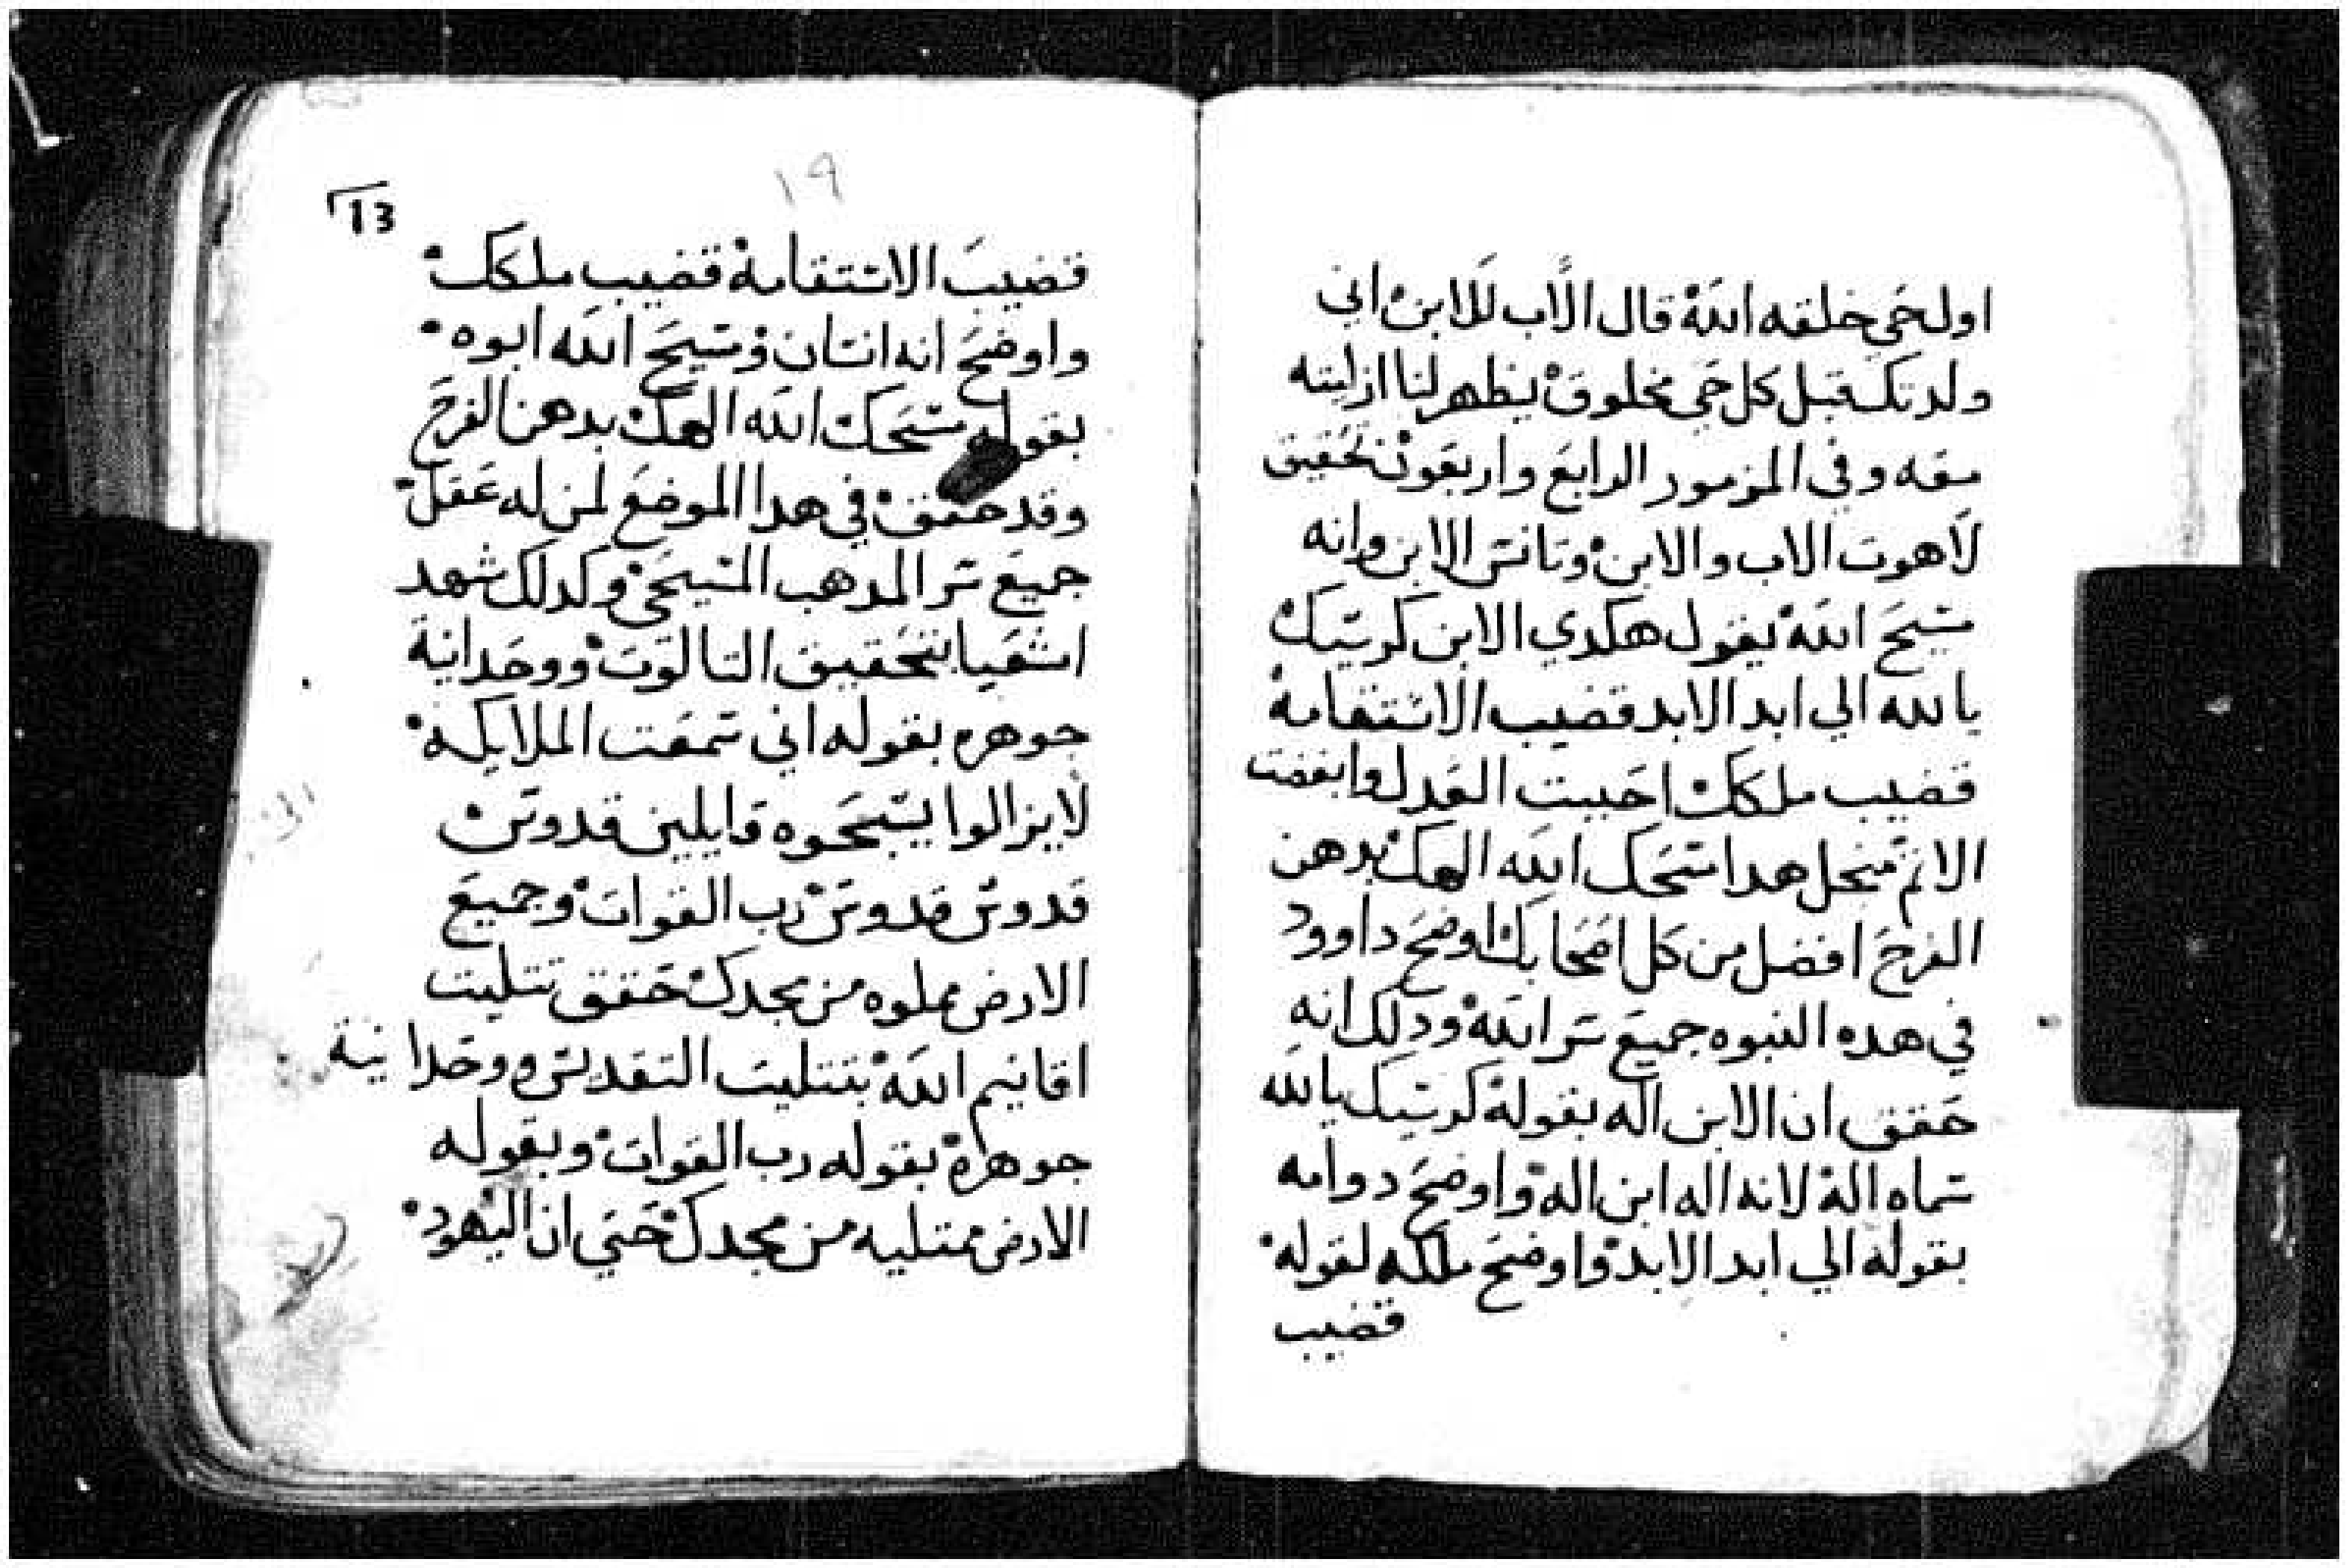 اول حي خلقه الله قال الاب للابن اني
ولدتك قبل كل حي مخلوق يظهر لنا ازليته
معه وفي المزمور الرابع واربعون تحقيق
لاهوت الاب والابن وتانس الابن وانه
مسيح الله يقول هكدي الابن كرسيك
يا الله الي ابد الابد قضيب الاستقامة
قضيب ملكك احببت العدل وابغضت
الاتم منجل هدا مسحك الله الهك بدهن
الفرح افضل من كل اصحابك اوضح داوود
في هده النبوه جميع سر الله ودلك انه
حقق ان الابن اله بقوله كرسيك يا الله
سماه اله لانه اله ابن اله واوضح دوامه
بقوله الي ابد الابد واوضح ملكه لقوله
قضيب
١٩
13
قضيب الاستقامة قضيب ملكك
واوضح انه انسان ومسيح الله ابوه
بقوله مسحك الله الهك بدهن الفرح
وقد حقق في هدا الموضع لمن له عقل
جميع سر المدهب المسيحي وكدلك شهد
اشعيا بتحقيق التالوت ووحدانية
جوهره بقوله اني سمعت الملايكه
لايزالوا يسبحوه قايلين قدوس
قدوس قدوس رب القوات وجميع
الارض مملوه من مجدك حقق تتليت
اقانيم الله بتتليت التقديس ووحدانية
جوهره بقوله رب القوات وبقوله
الارض ممتليه من مجدك حتي ان اليهود